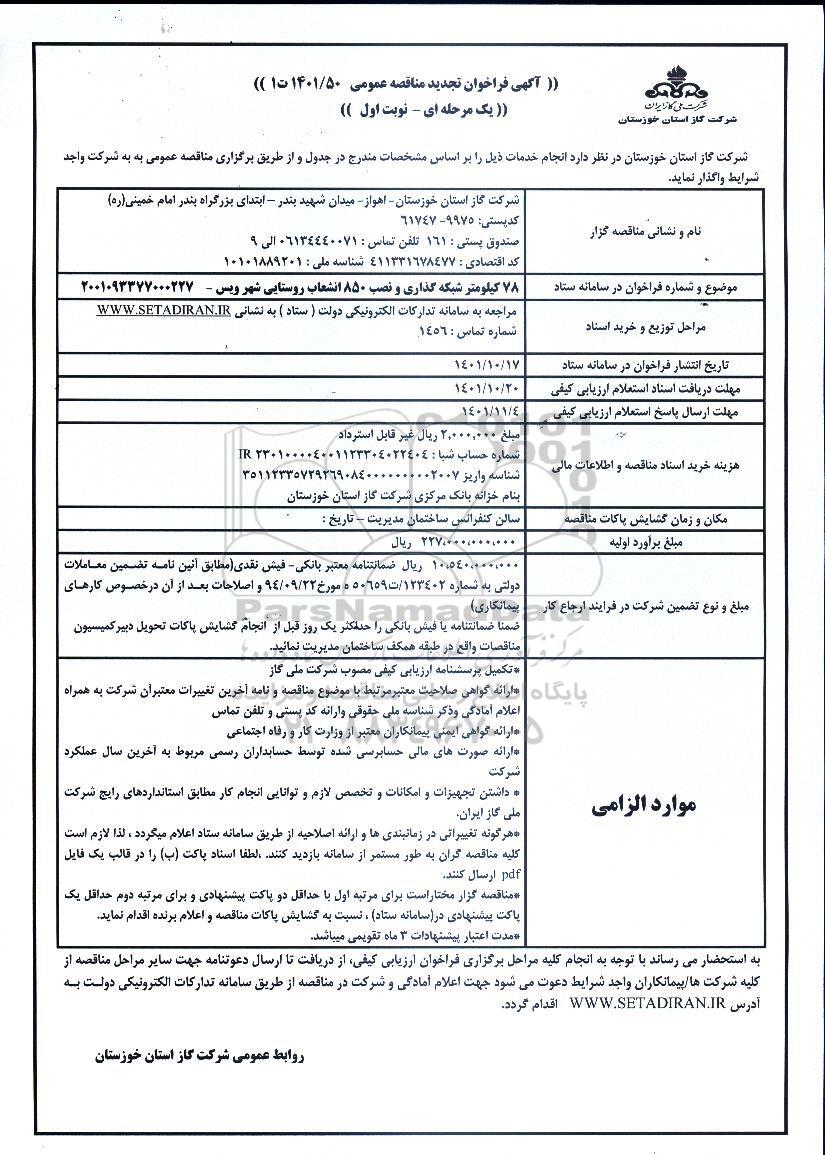 (( آگهی فراخوان تجدید مناقصه عمومی ۱۴۰۱/۵۰ ت۱ ))
(( یک مرحله ای - نوبت اول ))
شرکت ملی گاز ایران
شرکت گاز استان خوزستان
شرکت گاز استان خوزستان در نظر دارد انجام خدمات ذیل را بر اساس مشخصات مندرج در جدول و از طریق برگزاری مناقصه عمومی به به شرکت واجد
شرایط واگذار نماید.
نام و نشانی مناقصه گزار
شرکت گاز استان خوزستان- اهواز- میدان شهید بندر – ابتدای بزرگراه بندر امام خمینی(ره)
کدپستی: ۹۹۷۵- ۶۱۷۴۷
صندوق پستی : ۱۶۱ تلفن تماس : ۰۶۱۳۴۴۴۰۰۷۱ الی ۹
کد اقتصادی : ۴۱۱۳۳۱۶۷۸۴۷۷ شناسه ملی : ۱۰۱۰۱۸۸۹۲۰۱
موضوع و شماره فراخوان در سامانه ستاد
۷۸ کیلومتر شبکه گذاری و نصب ۸۵۰ انشعاب روستایی شهر ویس - ۲۰۰۱۰۹۳۳۷۷۰۰۰۲۲۷
مراحل توزیع و خرید اسناد
مراجعه به سامانه تدارکات الکترونیکی دولت ( ستاد ) به نشانی WWW.SETADIRAN.IR
شماره تماس : ۱۴۵۶
تاریخ انتشار فراخوان در سامانه ستاد
۱۴۰۱/۱۰/۱۷
مهلت دریافت اسناد استعلام ارزیابی کیفی
۱۴۰۱/۱۰/۲۰
مهلت ارسال پاسخ استعلام ارزیابی کیفی
۱۴۰۱/۱۱/۴
هزینه خرید اسناد مناقصه و اطلاعات مالی
مبلغ ۲,۰۰۰,۰۰۰ ریال غیر قابل استرداد
شماره حساب شبا : IR ۲۳۰۱۰۰۰۰۴۰۰۱۱۲۳۳۰۴۰۲۲۴۰۴
شناسه واریز ۳۵۱۱۲۳۳۵۷۲۹۲۶۹۰۸۴۰۰۰۰۰۰۰۰۰۲۰۰۷
بنام خزانه بانک مرکزی شرکت گاز استان خوزستان
مکان و زمان گشایش پاکات مناقصه
سالن کنفرانس ساختمان مدیریت – تاریخ :
مبلغ برآورد اولیه
۲۲۷,۰۰۰,۰۰۰,۰۰۰ ریال
مبلغ و نوع تضمین شرکت در فرایند ارجاع کار
۱۰,۵۴۰,۰۰۰,۰۰۰ ریال ضمانتنامه معتبر بانکی- فیش نقدی(مطابق آئین نامه تضمین معاملات
دولتی به شماره ۱۲۳۴۰۲/ت۵۰۶۵۹ ه مورخ۹۴/۰۹/۲۲ و اصلاحات بعد از آن درخصوص کارهای
پیمانکاری)
ضمنا ضمانتنامه یا فیش بانکی را حداکثر یک روز قبل از انجام گشایش پاکات تحویل دبیرکمیسیون
مناقصات واقع در طبقه همکف ساختمان مدیریت نمائید.
موارد الزامی
*تکمیل پرسشنامه ارزیابی کیفی مصوب شرکت ملی گاز
*ارائه گواهی صلاحیت معتبرمرتبط با موضوع مناقصه و نامه آخرین تغییرات معتبرآن شرکت به همراه
اعلام آمادگی وذکر شناسه ملی حقوقی وارانه کد پستی و تلفن تماس
*ارائه گواهی ایمنی پیمانکاران معتبر از وزارت کار و رفاه اجتماعی
*ارائه صورت های مالی حسابرسی شده توسط حسابداران رسمی مربوط به آخرین سال عملکرد
شرکت
* داشتن تجهیزات و امکانات و تخصص لازم و توانایی انجام کار مطابق استانداردهای رایج شرکت
ملی گاز ایران.
*هرگونه تغییراتی در زمانبندی ها و ارائه اصلاحیه از طریق سامانه ستاد اعلام میگردد ، لذا لازم است
کلیه مناقصه گران به طور مستمر از سامانه بازدید کنند. ،لطفا اسناد پاکت (ب) را در قالب یک فایل
pdf ارسال کنند.
*مناقصه گزار مختاراست برای مرتبه اول با حداقل دو پاکت پیشنهادی و برای مرتبه دوم حداقل یک
پاکت پیشنهادی در(سامانه ستاد) ، نسبت به گشایش پاکات مناقصه و اعلام برنده اقدام نماید.
*مدت اعتبار پیشنهادات ۳ ماه تقویمی میباشد.
به استحضار می رساند با توجه به انجام کلیه مراحل برگزاری فراخوان ارزیابی کیفی، از دریافت تا ارسال دعوتنامه جهت سایر مراحل مناقصه از
کلیه شرکت ها/پیمانکاران واجد شرایط دعوت می شود جهت اعلام آمادگی و شرکت در مناقصه از طریق سامانه تدارکات الکترونیکی دولت به
آدرس WWW.SETADIRAN.IR اقدام گردد.
روابط عمومی شرکت گاز استان خوزستان
ParsNamadData